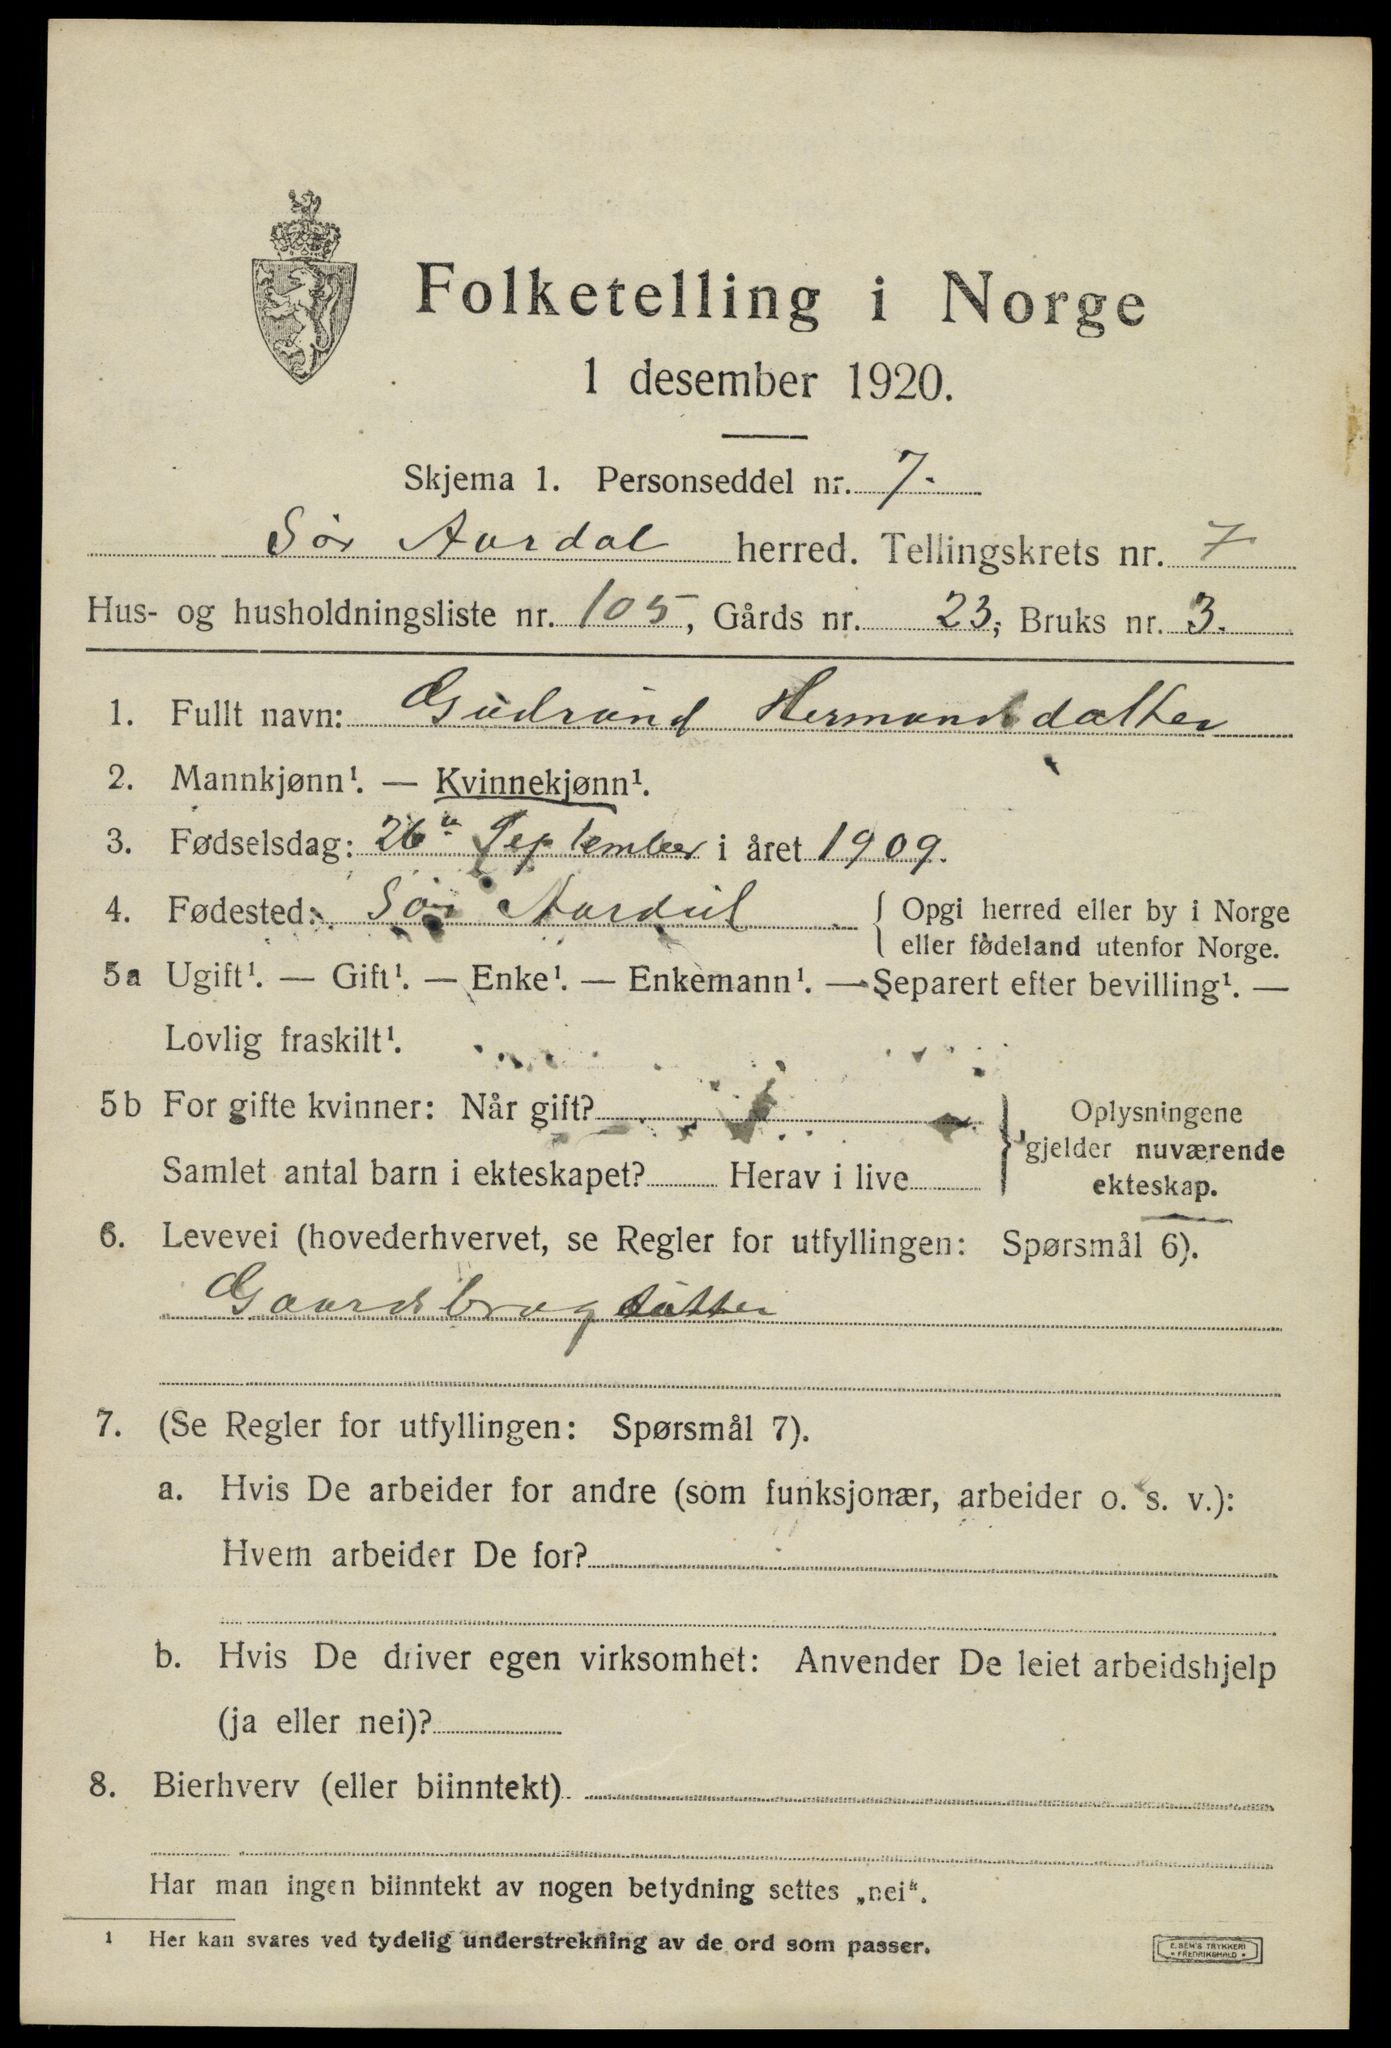 Folketelling i Norge
1 desember 1920.
Skjema 1. Personseddel nr. 7.
Sör Aurdal herred. Tellingskrets nr. 7
Hus- og husholdningsliste nr. 105, Gårds nr. 23, Bruks nr. 3.
1. Fullt navn: Gudrund Hermandsdatter
2. Mannkjønn¹. — Kvinnekjønn¹.
3. Fødselsdag: 26de September i året 1909.
4. Fødested: Sör Aurdal { Opgi herred eller by i Norge
eller fødeland utenfor Norge.
5a Ugift¹. — Gift¹. — Enke¹. — Enkemann¹. — Separert efter bevilling¹. —
Lovlig fraskilt¹.
5b For gifte kvinner: Når gift? } Oplysningene
gjelder nuværende
Samlet antal barn i ekteskapet? Herav i live
ekteskap.
6. Levevei (hovederhvervet, se Regler for utfyllingen: Spørsmål 6).
Gaardsbrug datter
7. (Se Regler for utfyllingen: Spørsmål 7).
a. Hvis De arbeider for andre (som funksjonær, arbeider o. s. v.):
Hvem arbeider De for?
b. Hvis De driver egen virksomhet: Anvender De leiet arbeidshjelp
(ja eller nei)?
8. Bierhverv (eller biinntekt)
Har man ingen biinntekt av nogen betydning settes „nei“.
1 Her kan svares ved tydelig understrekning av de ord som passer.
E. SEM'S TRYKKERI
* FREDRIKSHALD *